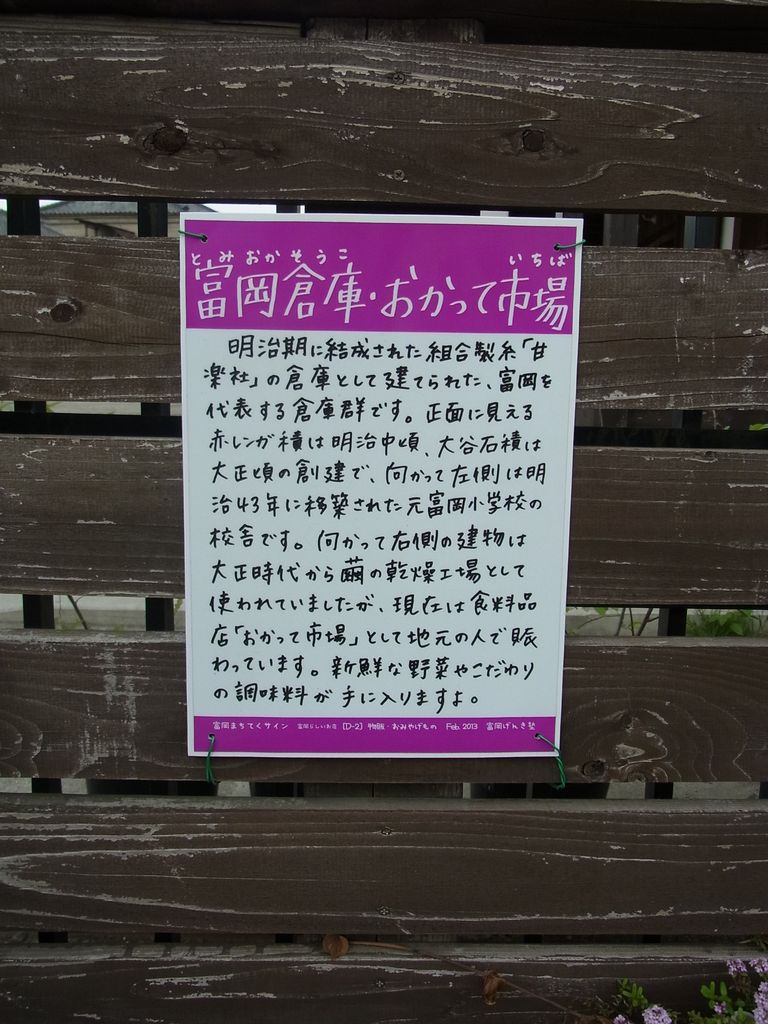 とみおかそうこ いちば
富岡倉庫・おかって市場
明治期に結成された組合製糸「甘
楽社」の倉庫として建てられた、富岡を
代表する倉庫群です。正面に見える
赤レンガ積は明治中頃、大谷石積は
大正頃の創建で、向かって左側は明
治43年に移築された元富岡小学校の
校舎です。向かって右側の建物は
大正時代から繭の乾燥工場として
使われていましたが、現在は食料品
店「おかって市場」として地元の人で賑
わっています。新鮮な野菜やこだわり
の調味料が手に入りますよ。
富岡まちてくサイン 富岡らしいお店 [D-2] 物販・おみやげもの Feb. 2013 富岡げんき塾